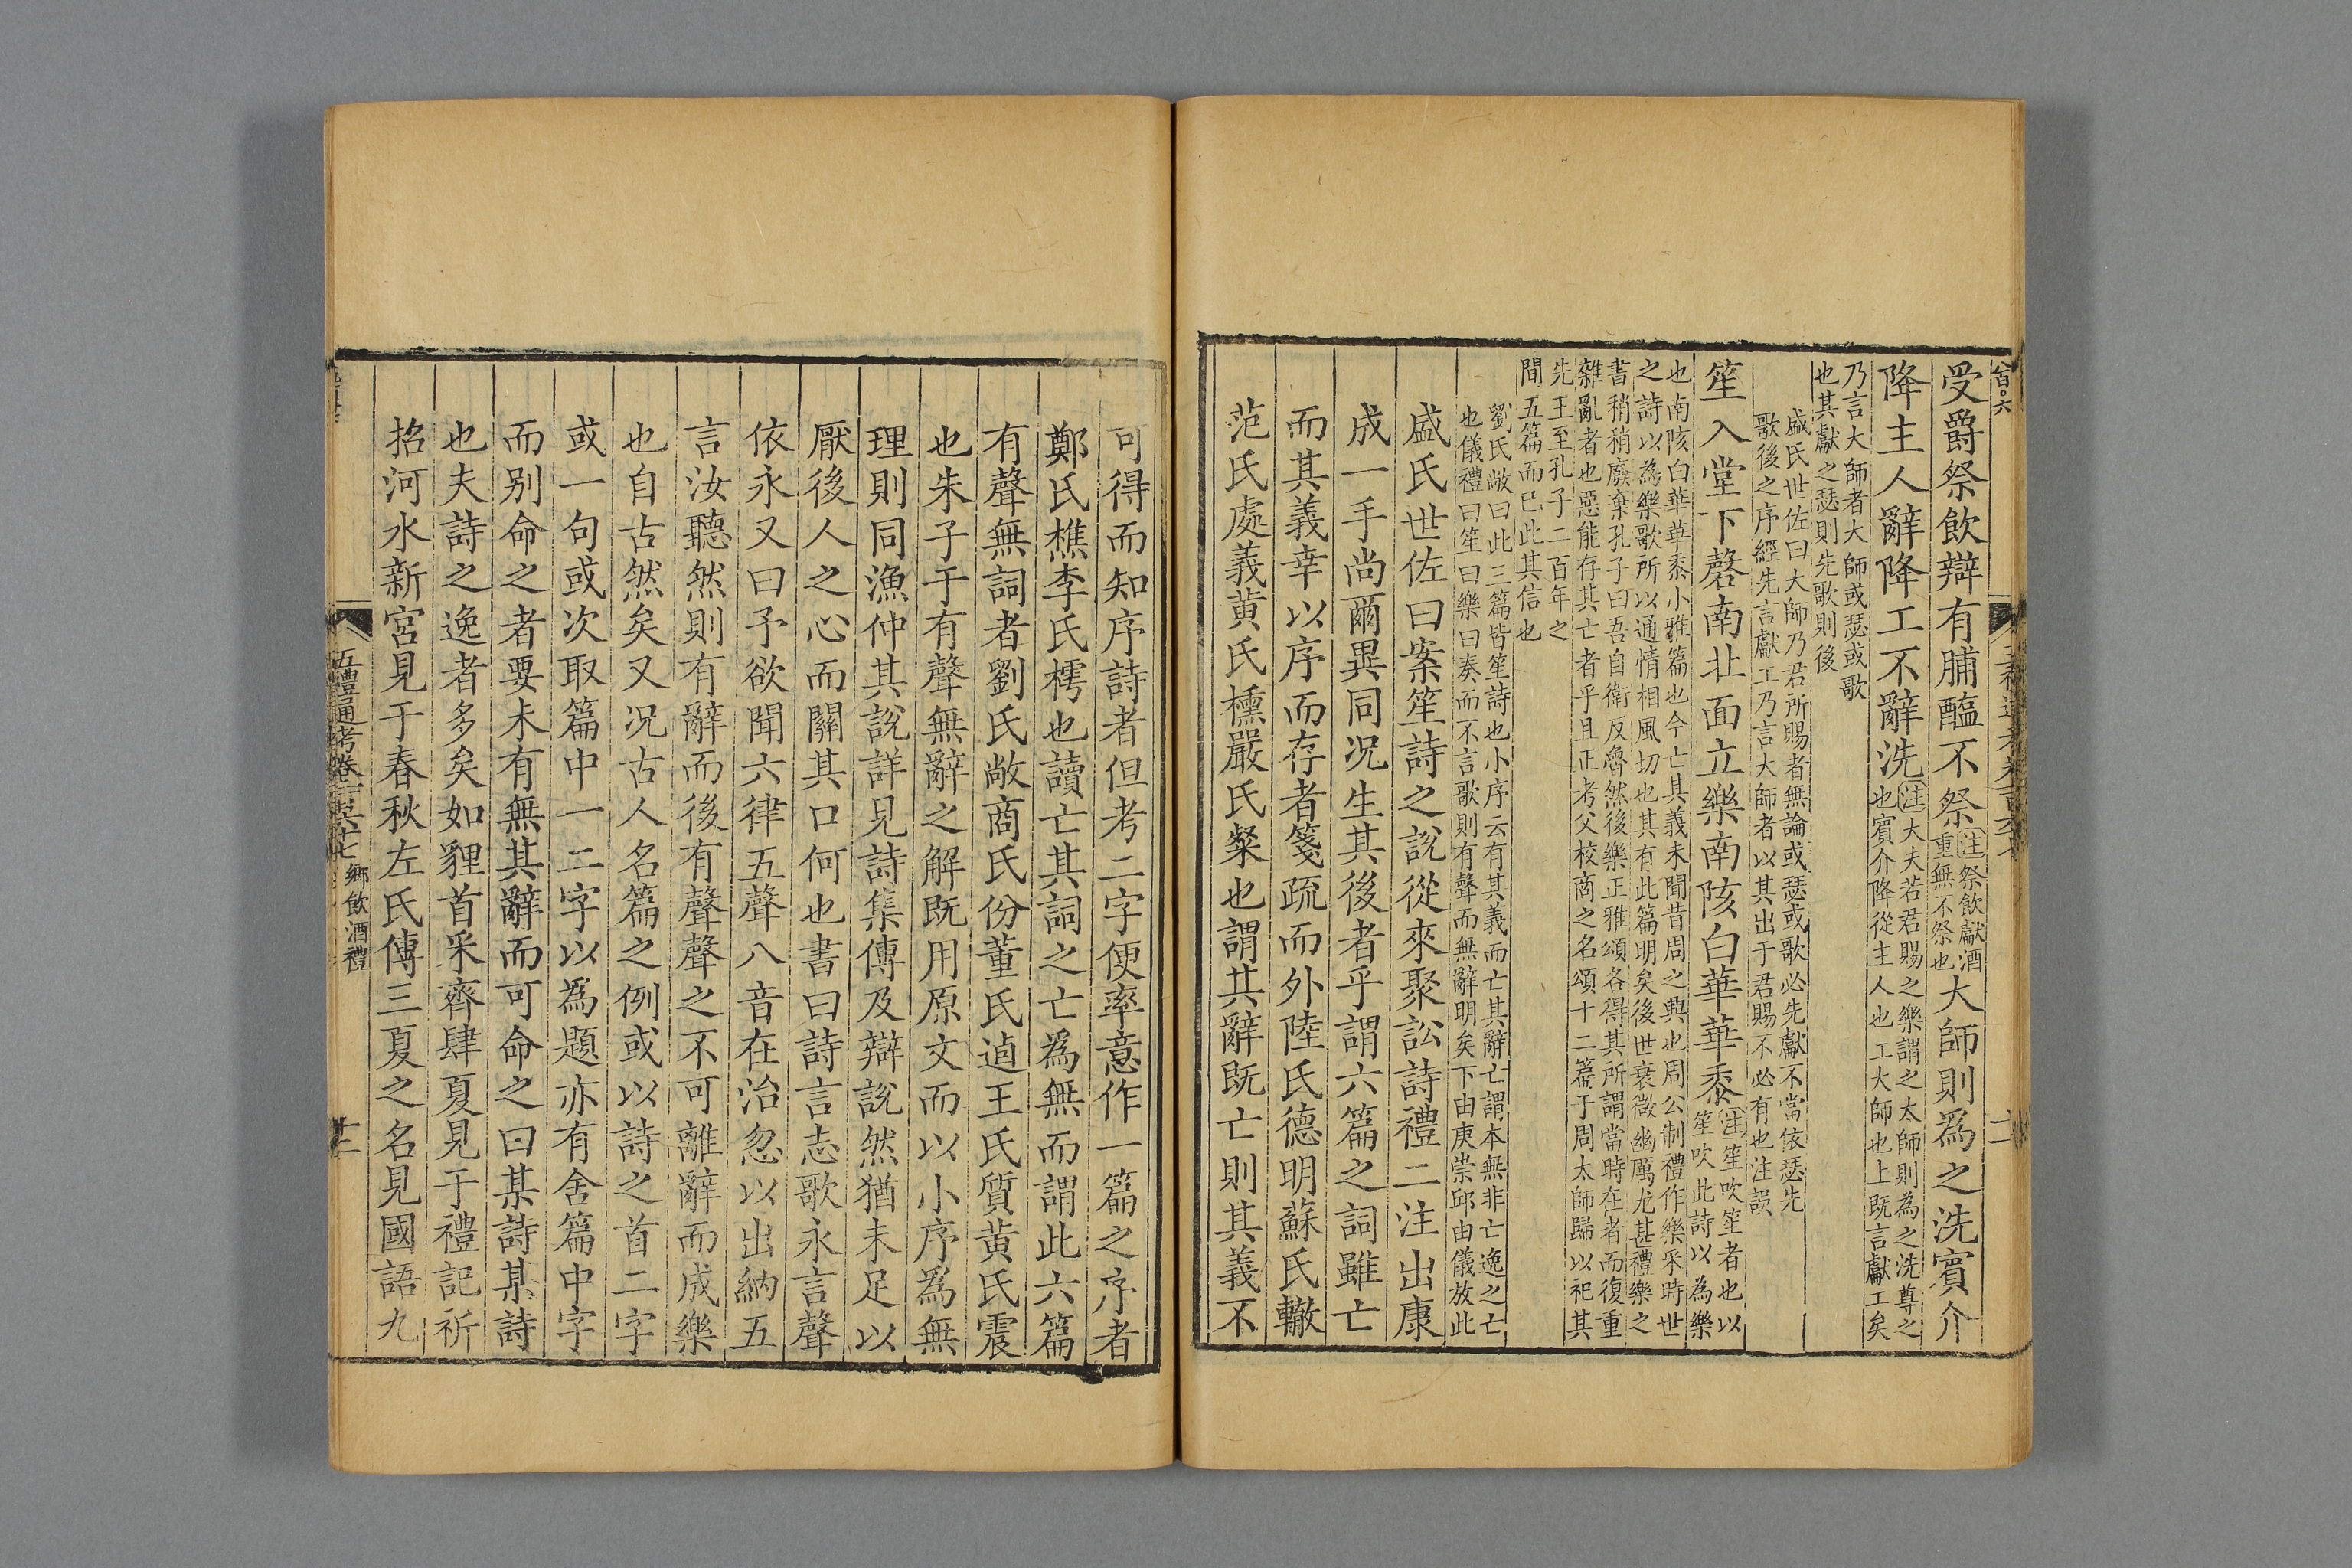 受爵祭飲辯有脯醢不祭注祭飲獻酒重無不祭也大師則為之洗賓介
降主人辭降工不辭洗注大夫若君賜之樂謂之太師則為之洗尊之也賓介降從主人也工大師也上既言獻工矣
乃言大師者大師或瑟或歌也其獻之瑟則先歌則後
盛氏世佐曰大師乃君所賜者無論或瑟或歌必先獻不當依瑟先歌後之序經先言獻工乃言大師者以其出于君賜不必有也注誤
笙入堂下磬南北面立樂南陔白華華黍注笙吹笙者也以笙吹此詩以為樂
也南陔白華華黍小雅篇也今亡其義未聞昔周之興也周公制禮作樂采時世之詩以為樂歌所以通情相風切也其有此篇明矣後世衰微幽厲尤甚禮樂之
書稍稍廢棄孔子曰吾自衛反魯然後樂正雅頌各得其所謂當時在者而復重雜亂者也惡能存其亡者乎且正考父校商之名頌十二篇于周太師歸以祀其
先王至孔子二百年之間五篇而已此其信也
劉氏敞曰此三篇皆笙詩也小序云有其義而亡其辭亡謂本無非亡逸之亡也儀禮曰笙曰樂曰奏而不言歌則有聲而無辭明矣下由庚崇邱由儀放此
盛氏世佐曰案笙詩之說從來聚訟詩禮二注出康
成一手尚爾異同况生其後者乎謂六篇之詞雖亡
而其義幸以序而存者箋疏而外陸氏德明蘇氏轍
范氏處義黃氏櫄嚴氏粲也謂其辭既亡則其義不
可得而知序詩者但考二字便率意作一篇之序者
鄭氏樵李氏樗也讀亡其詞之亡為無而謂此六篇
有聲無詞者劉氏敞商氏份董氏逌王氏質黃氏震
也朱子于有聲無辭之解既用原文而以小序為無
理則同漁仲其說詳見詩集傳及辯說然猶未足以
厭後人之心而關其口何也書曰詩言志歌永言聲
依永又曰予欲聞六律五聲八音在治忽以出納五
言汝聽然則有辭而後有聲聲之不可離辭而成樂
也自古然矣又况古人名篇之例或以詩之首二字
或一句或次取篇中一二字以為題亦有舍篇中字
而别命之者要未有無其辭而可命之曰某詩某詩
也夫詩之逸者多矣如貍首采齊肆夏見于禮記祈
招河水新宮見于春秋左氏傳三夏之名見國語九
五禮通考卷一百六十七 鄉飲酒禮 十二